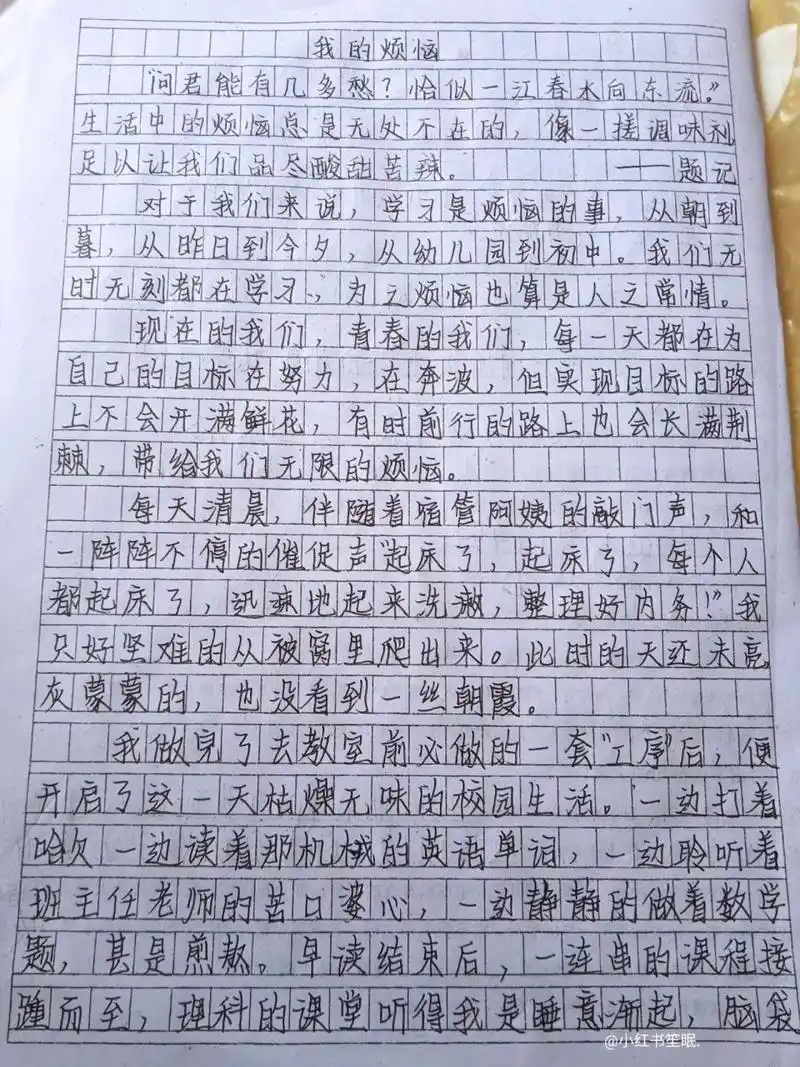 我的烦恼
“问君能有几多愁？恰似一江春水向东流。”
生活中的烦恼总是无处不在的，像一搓调味剂
足以让我们品尽酸甜苦辣。 ——题记
对于我们来说，学习是烦恼的事，从朝到
暮，从昨日到今夕，从幼儿园到初中。我们无
时无刻都在学习，为之烦恼也算是人之常情。
现在的我们，青春的我们，每一天都在为
自己的目标在努力，在奔波，但实现目标的路
上不会开满鲜花，有时前行的路上也会长满荆
棘，带给我们无限的烦恼。
每天清晨，伴随着宿管阿姨的敲门声，和
一阵阵不停的催促声“起床了，起床了，每个人
都起床了，迅速地起来洗漱，整理好内务！”我
只好坚难的从被窝里爬出来。此时的天还未亮
灰蒙蒙的，也没看到一丝朝霞。
我做完了去教室前必做的一套“工序”后，便
开启了这一天枯燥无味的校园生活。一边打着
哈欠一边读着那机械的英语单词，一边聆听着
班主任老师的苦口婆心，一边静静的做着数学
题，甚是煎熬。早读结束后，一连串的课程接
踵而至，理科的课堂听得我是睡意渐起，脑袋
@小红书笙眠.